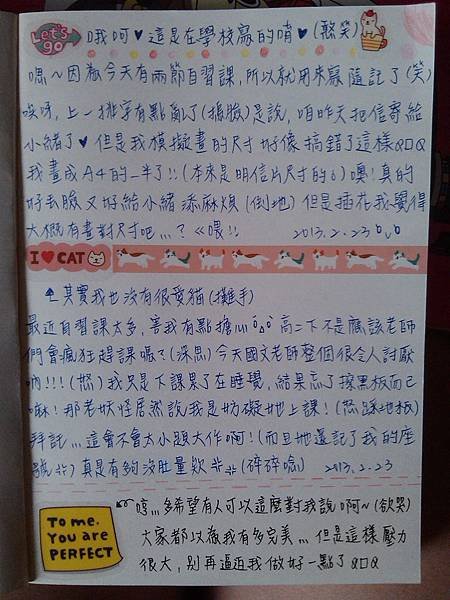 Let's go 哦呵♥這是在學校寫的唷♥(憨笑)
嗯~因為今天有兩節自習課,所以就用來寫隨記了(笑)
唉呀,上一排字有點亂了(搗臉)是說,咱昨天把信寄給
小緒了♥但是我模擬畫的尺寸好像搞錯了這樣QAQ
我畫成A4的一半了!!(本來是明信片尺寸的6)噢!真的
好丟臉又好給小緒添麻煩(倒地)但是插花我覺得
大概有畫對尺寸吧...?《喂!! 2013.2.23
I ♥ CAT
其實我也沒有很愛貓(攤手)
最近自習課太多,害我有點擔心 高二下不是應該老師
們會瘋狂趕課嗎?(深思)今天國文老師整個很令人討厭
吶!!!(怒)我只是下課累了在睡覺,結果忘了擦黑板而已
嘛!那老妖怪居然說我是妨礙她上課!(怒踩地板)
拜託...這會不會太小題大作啊!(而且她還記了我的座
號)真是有夠沒肚量欸(碎碎唸) 2013.2.23
哼...多希望有人可以這麼對我說啊~(欲哭)
To me. You are PERFECT
大家都以為我有多完美...但是這樣壓力
很大,別再逼迫我做好一點了QAQ